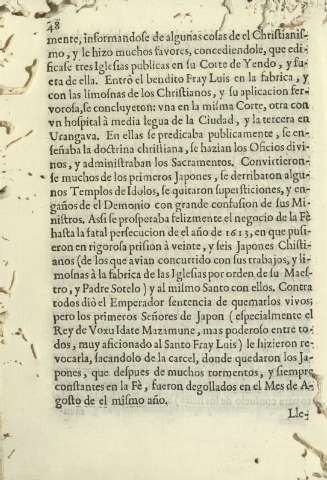 48
mente, informandose de algunas cosas de el Christianis-
mo, y le hizo muchos favores, concediendole, que edi-
ficase tres Iglesias publicas en su Corte de Yendo, y su-
eta de ella. Entrò el bendito Fray Luis en la fabrica, y
con las limosnas de los Christianos, y su aplicacion fer-
vorosa, se concluyeron: vna en la misma Corte, otra con
vn hospital à media legua de la Ciudad, y la tercera en
Urangava. En ellas se predicaba publicamente, se en-
señaba la doctrina christiana, se hazian los Oficios divi-
nos, y administraban los Sacramentos. Convirtieron-
se muchos de los primeros Japones, se derribaron algu-
nos Templos de Idolos, se quitaron supersticiones, y en-
gaños de el Demonio con grande confusion de sus Mi-
nistros. Assi se prosperaba felizmente el negocio de la Fè
hasta la fatal persecucion de el año de 1613, en que pusi-
eron en rigorosa prision à veinte, y seis Japones Chisti-
anos (de los que avian concurrido con sus trabajos, y li-
mosnas à la fabrica de las Iglesias por orden de su Maes-
tro, y Padre Sotelo) y al mismo Santo con ellos. Contra
todos diò el Emperador sentencia de quemarlos vivos;
pero los primeros Señores de Japon (especialmente el
Rey de Voxu Idate Mazamune, mas poderoso entre to-
dos, muy aficionado al Santo Fray Luis) le hizieron re-
vocarla, sacandolo de la carcel, donde quedaron los Ja-
pones, que despues de muchos tormentos, y siempre
constantes en la Fè, fueron degollados en el Mes de A-
gosto de el mismo año.
Lle-